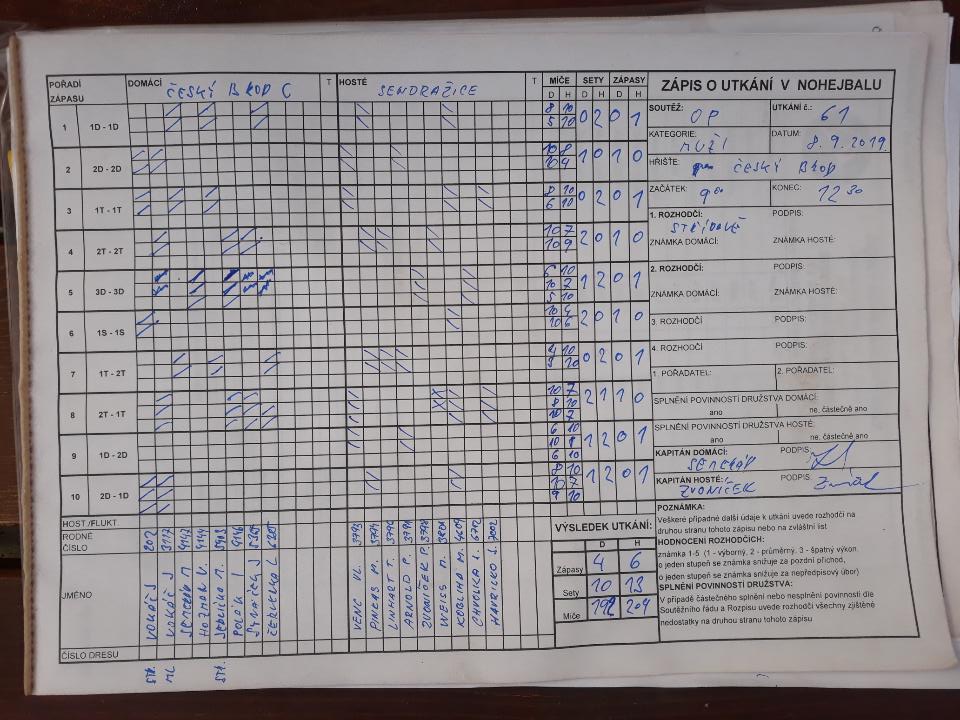 POŘADÍ ZÁPASU
DOMÁCÍ ČESKÝ BROD C
T
HOSTÉ SENDRAŽICE
T
MÍČE SETY ZÁPASY
D H D H D H
1 1D - 1D 8 10 0 2 0 1
5 10
2 2D - 2D 10 8 1 0 1 0
10 4
3 1T - 1T 8 10 0 2 0 1
6 10
4 2T - 2T 10 7 2 0 1 0
10 9
5 3D - 3D 6 10 1 2 0 1
10 7
5 10
6 1S - 1S 10 4 2 0 1 0
10 6
7 1T - 2T 4 10 0 2 0 1
5 10
8 2T - 1T 10 7 2 1 1 0
8 10
10 7
9 1D - 2D 6 10 1 2 0 1
10 8
6 10
10 2D - 1D 8 10 1 2 0 1
10 7
9 10
HOST./FLUKT.
RODNÉ ČÍSLO
JMÉNO
ČÍSLO DRESU
VOKÁČ J
VOKÁČ J
SEMERÁD M
HOZMAN V.
SEDLIČKA M.
POLÁK J
ČERVENKA L
VENC VL. 3793
PINKAS M. 3794
LINHART T. 3792
ARNOLD P. 3791
ZVONÍČEK P. 3798
WEISS M.
KOBLIHA M. 4609
CHVALKA J. 6712
HAVRILKO J. 7002
STR.
ML
STR.
VÝSLEDEK UTKÁNÍ:
D H
Zápasy 4 6
Sety 10 13
Míče 192 204
ZÁPIS O UTKÁNÍ V NOHEJBALU
SOUTĚŽ: OP
UTKÁNÍ č.: 61
KATEGORIE: MUŽI
DATUM: 8. 9. 2019
HŘIŠTĚ: ČESKÝ BROD
ZAČÁTEK: 9 00
KONEC: 12 30
1. ROZHODČÍ: STŘÍDAVĚ
PODPIS:
ZNÁMKA DOMÁCÍ:
ZNÁMKA HOSTÉ:
2. ROZHODČÍ:
PODPIS:
ZNÁMKA DOMÁCÍ:
ZNÁMKA HOSTÉ:
3. ROZHODČÍ
PODPIS:
4. ROZHODČÍ
PODPIS:
1. POŘADATEL:
2. POŘADATEL:
SPLNĚNÍ POVINNOSTÍ DRUŽSTVA DOMÁCÍ:
ano ne, částečně ano
SPLNĚNÍ POVINNOSTÍ DRUŽSTVA HOSTÉ:
ano ne, částečně ano
KAPITÁN DOMÁCÍ: SEMERÁD
PODPIS:
KAPITÁN HOSTÉ: ZVONÍČEK
PODPIS:
POZNÁMKA:
Veškeré případné další údaje k utkání uvede rozhodčí na
druhou stranu tohoto zápisu nebo na zvláštní list
HODNOCENÍ ROZHODČÍCH:
známka 1-5 (1 - výborný, 2 - průměrný, 3 - špatný výkon.
o jeden stupeň se známka snižuje za pozdní příchod,
o jeden stupeň se známka snižuje za nepředpisový úbor)
SPLNĚNÍ POVINNOSTÍ DRUŽSTVA:
V případě částečného splnění nebo nesplnění povinností dle
Soutěžního řádu a Rozpisu uvede rozhodčí všechny zjištěné
nedostatky na druhou stranu tohoto zápisu